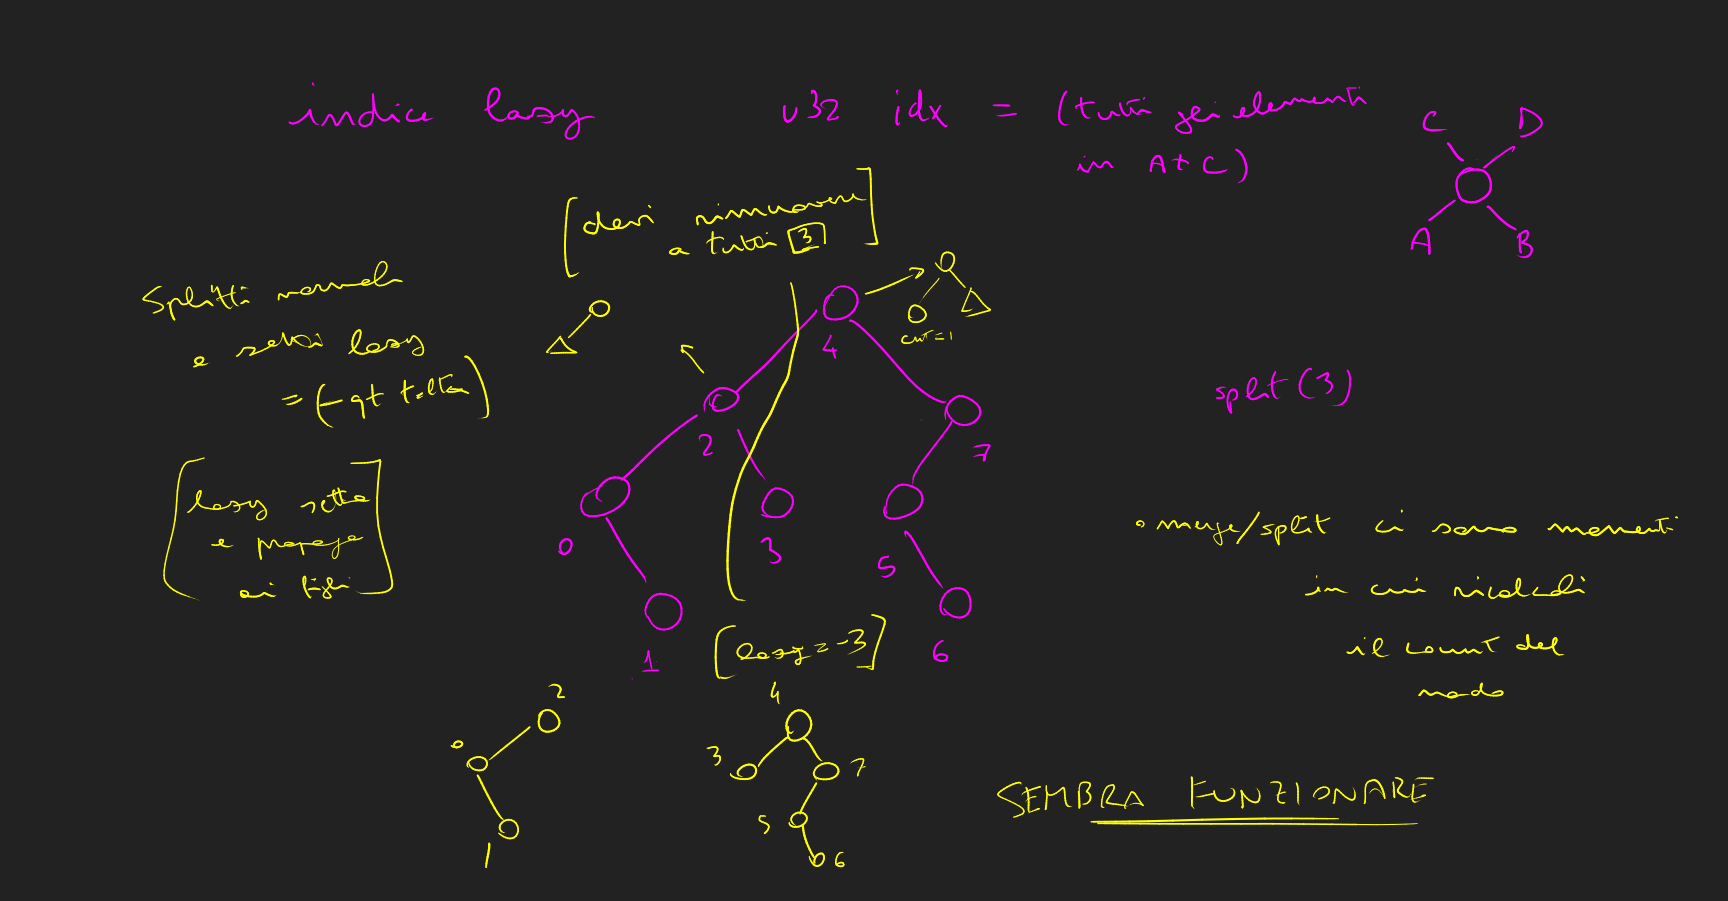 indice lazy
u32 idx = (tutti gli elementi
in A+C)
C D
A B
[devi rimuovere
a tutti 3]
Splitti normale
e setti lazy
= (-qt tolta)
cnt=1
4
2
7
split(3)
[lazy setta
e propaga
ai figli]
0
3
5
1
6
[lazy=-3]
• merge/split ci sono momenti
in cui ricalcoli
il count del
nodo
2
0
1
4
3
7
5
6
SEMBRA FUNZIONARE